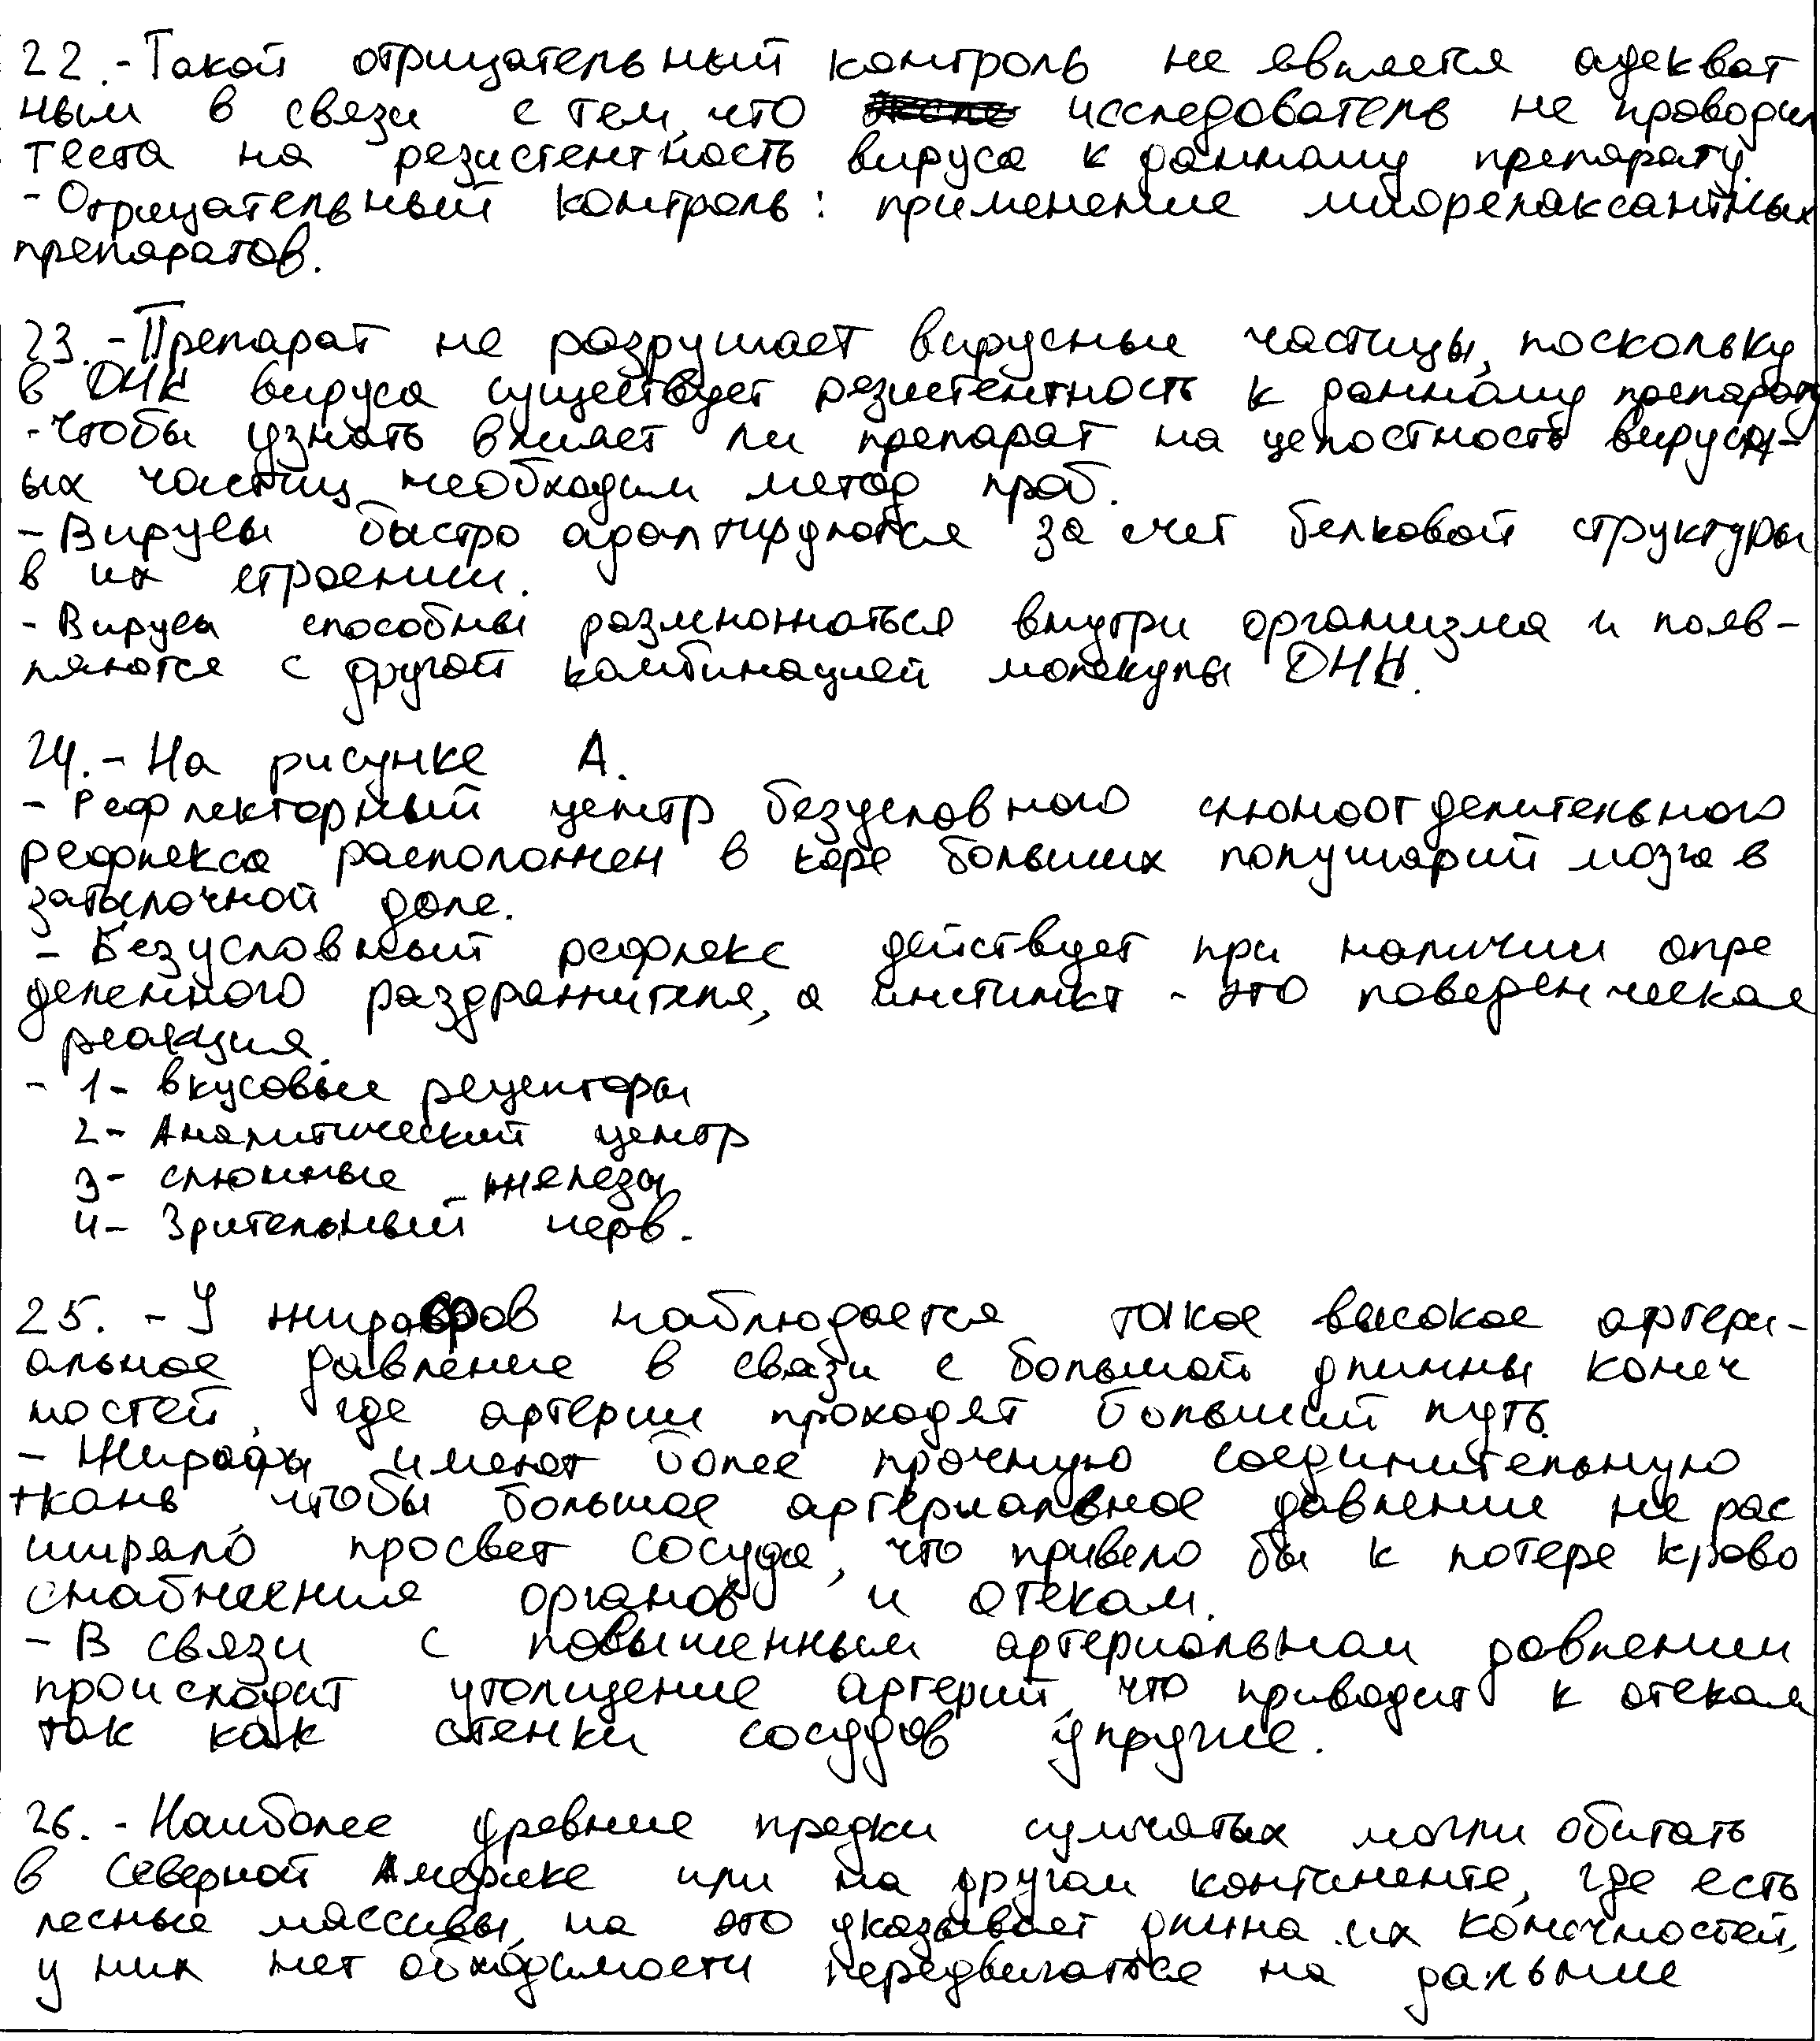 22.-Такой отрицательный контроль не является адекват
ным в связи с тем, что исследователь не проводил
теста на резистентность вируса к данному препарату.
- Отрицательный контроль: применение миорелаксантных
препаратов.
23.-Препарат не разрушает вирусные частицы, поскольку
в ДНК вируса существует резистентность к данному препарату
-Чтобы узнать влияет ли препарат на целостность вирусн-
ых частиц необходим метод проб.
- Вирусы быстро адаптируются за счет белковой структуры
в их строении.
- Вирусы способны размножаться внутри организма и появ-
ляются с другой комбинацией молекулы ДНК.
24.- На рисунке А.
- Рефлекторный центр безусловного слюноотделительного
рефлекса расположен в коре больших полушарий мозга в
затылочной доле.
- Безусловный рефлекс действует при наличии опре
деленного раздражителя, а инстинкт - это поведенческая
реакция.
- 1- вкусовые рецепторы
2- Аналитический центр
3- слюнные железы
4- Зрительный нерв.
25. - У жирафов наблюдается такое высокое артери-
альное давление в связи с большой длинны конеч
ностей, где артерии проходят больший путь.
- Жирафы имеют более прочную соединительную
ткань, чтобы большое артериальное давление не рас
ширяло просвет сосуда, что привело бы к потере крово
снабжения органов и отекам.
- В связи с повышенным артериальном давлении
происходит утолщение артерий, что приводит к отекам
так как стенки сосудов упругие.
26. - Наиболее древние предки сумчатых могли обитать
в Северной Америке или на другом континенте, где есть
лесные массивы, на это указывает длинна их конечностей,
у них нет обходимости передвигаться на дальние